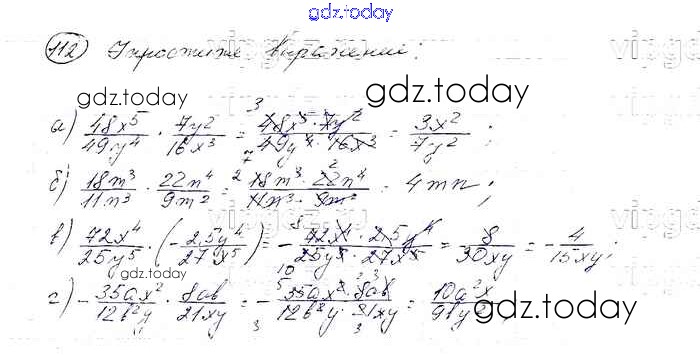 gdz.today
112 Упростите выражение:
gdz.today gdz.today
а) 48x⁵/49y⁴ · 7y²/16x³ = 48x⁵·7y²/49y⁴·16x³ = 3x²/7y²;
б) 18m³/11n³ · 22n⁴/9m² = 18m³·22n⁴/11n³·9m² = 4mn;
в) 72x⁴/25y⁵ · (-2,5y⁴/27x⁵) = - 72x⁴·2,5y⁴/25y⁵·27x⁵ = 8/30xy = -4/15xy;
gdz.today
г) -35ax²/12b²y · 8ab/21xy = - 35ax²·8ab/12b²y·21xy = 10a²x/9by²
gdz.today